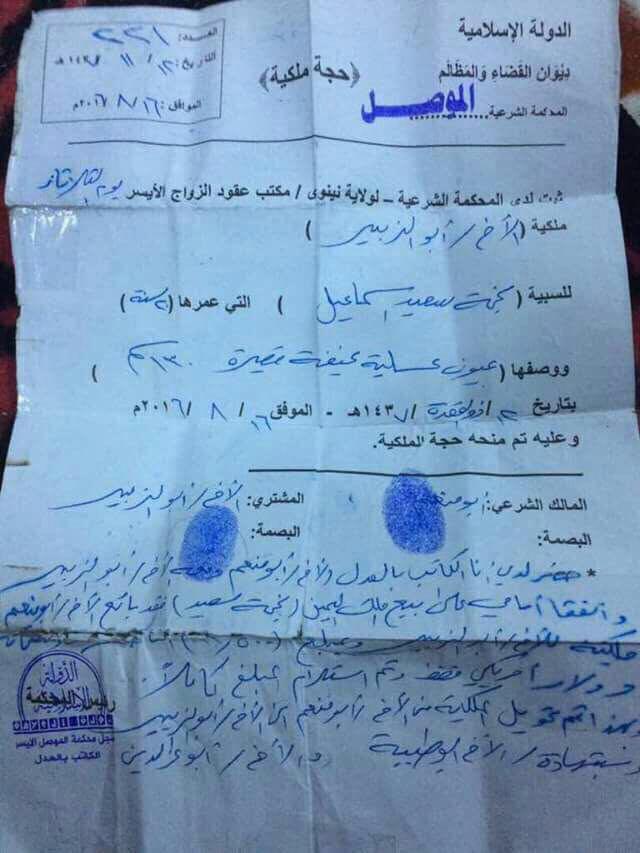 الدولة الإسلامية
ديوان القضاء والمظالم
المحكمة الشرعية الموصل
(حجة ملكية)
العدد: ٢٢١
التاريخ: ١٢ / ١١ / ١٤٣٧هـ
الموافق: ١٦ / ٨ / ٢٠١٦م
ثبت لدى المحكمة الشرعية - لولاية نينوى / مكتب عقود الزواج الأيسر يوم
ملكية (الأخ / أبو الزبير)
للسبية (نجمة سعيد اسماعيل) التي عمرها (٢٠ سنة)
ووصفها (عيون عسلية نحيفة قصيرة ١٣٠ سم)
بتاريخ ١٢ / ذو القعدة / ١٤٣٧هـ - الموافق ١٦ / ٨ / ٢٠١٦م
وعليه تم منحه حجة الملكية.
المالك الشرعي: أبو منعم المشتري: الأخ / أبو الزبير
البصمة: البصمة:
* حضر لدي أنا الكاتب بالعدل الأخ / أبو منعم ومعه الأخ / أبو الزبير
واتفقا أمامي على بيع ملك اليمين (نجمة سعيد) فقد باع الأخ / أبو منعم
ملكيته للأخ / أبو الزبير وبمبلغ
دولار أمريكي فقط وتم استلام المبلغ كاملاً.
وبهذا تم تحويل الملكية من الأخ / أبو منعم الى الأخ / أبو الزبير
وبشهادة / الأخ والأخ / أبو عز الدين
الدولة الإسلامية
سجل محكمة الموصل الأيسر
الكاتب بالعدل